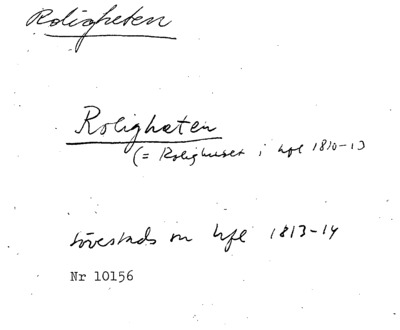 Roligheten
Roligheten
(= Rolighuset i hfl 1810-13
Lövestads sn hfl 1813-14
Nr 10156